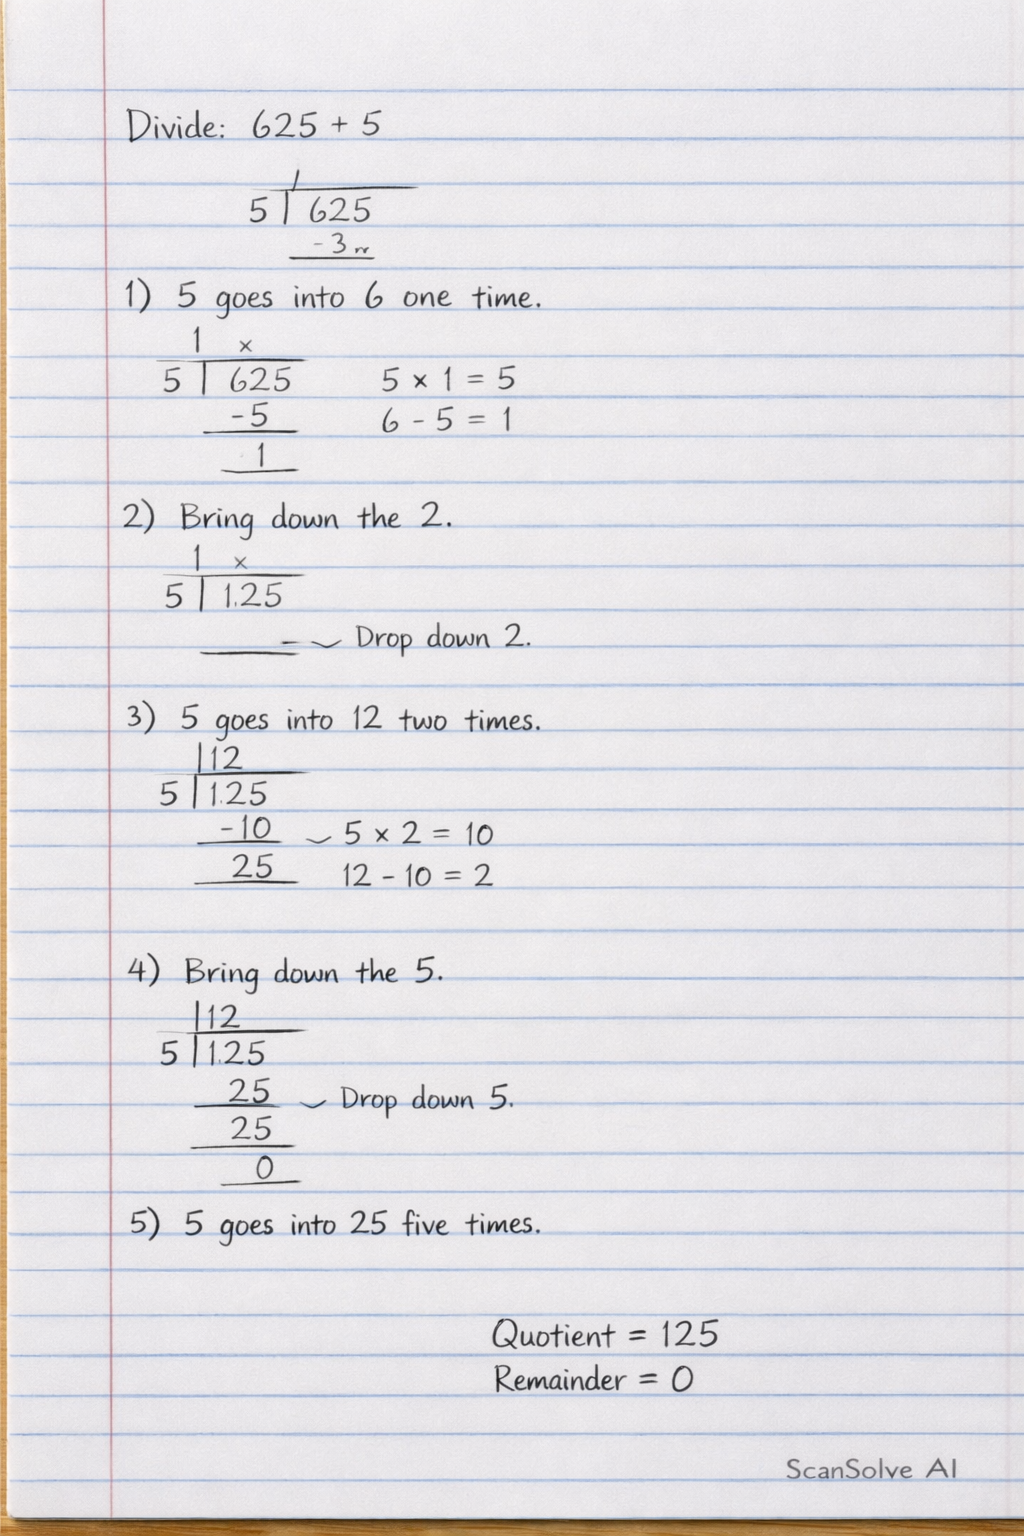 Divide: 625 + 5
5 | 625
-3
1) 5 goes into 6 one time.
1 x
5 | 625 5 × 1 = 5
-5 6 - 5 = 1
1
2) Bring down the 2.
1 x
5 | 1.25
– Drop down 2.
3) 5 goes into 12 two times.
|12
5 | 1.25
-10 5 × 2 = 10
25 12 - 10 = 2
4) Bring down the 5.
|12
5 | 1.25
25 Drop down 5.
25
0
5) 5 goes into 25 five times.
Quotient = 125
Remainder = 0
ScanSolve AI